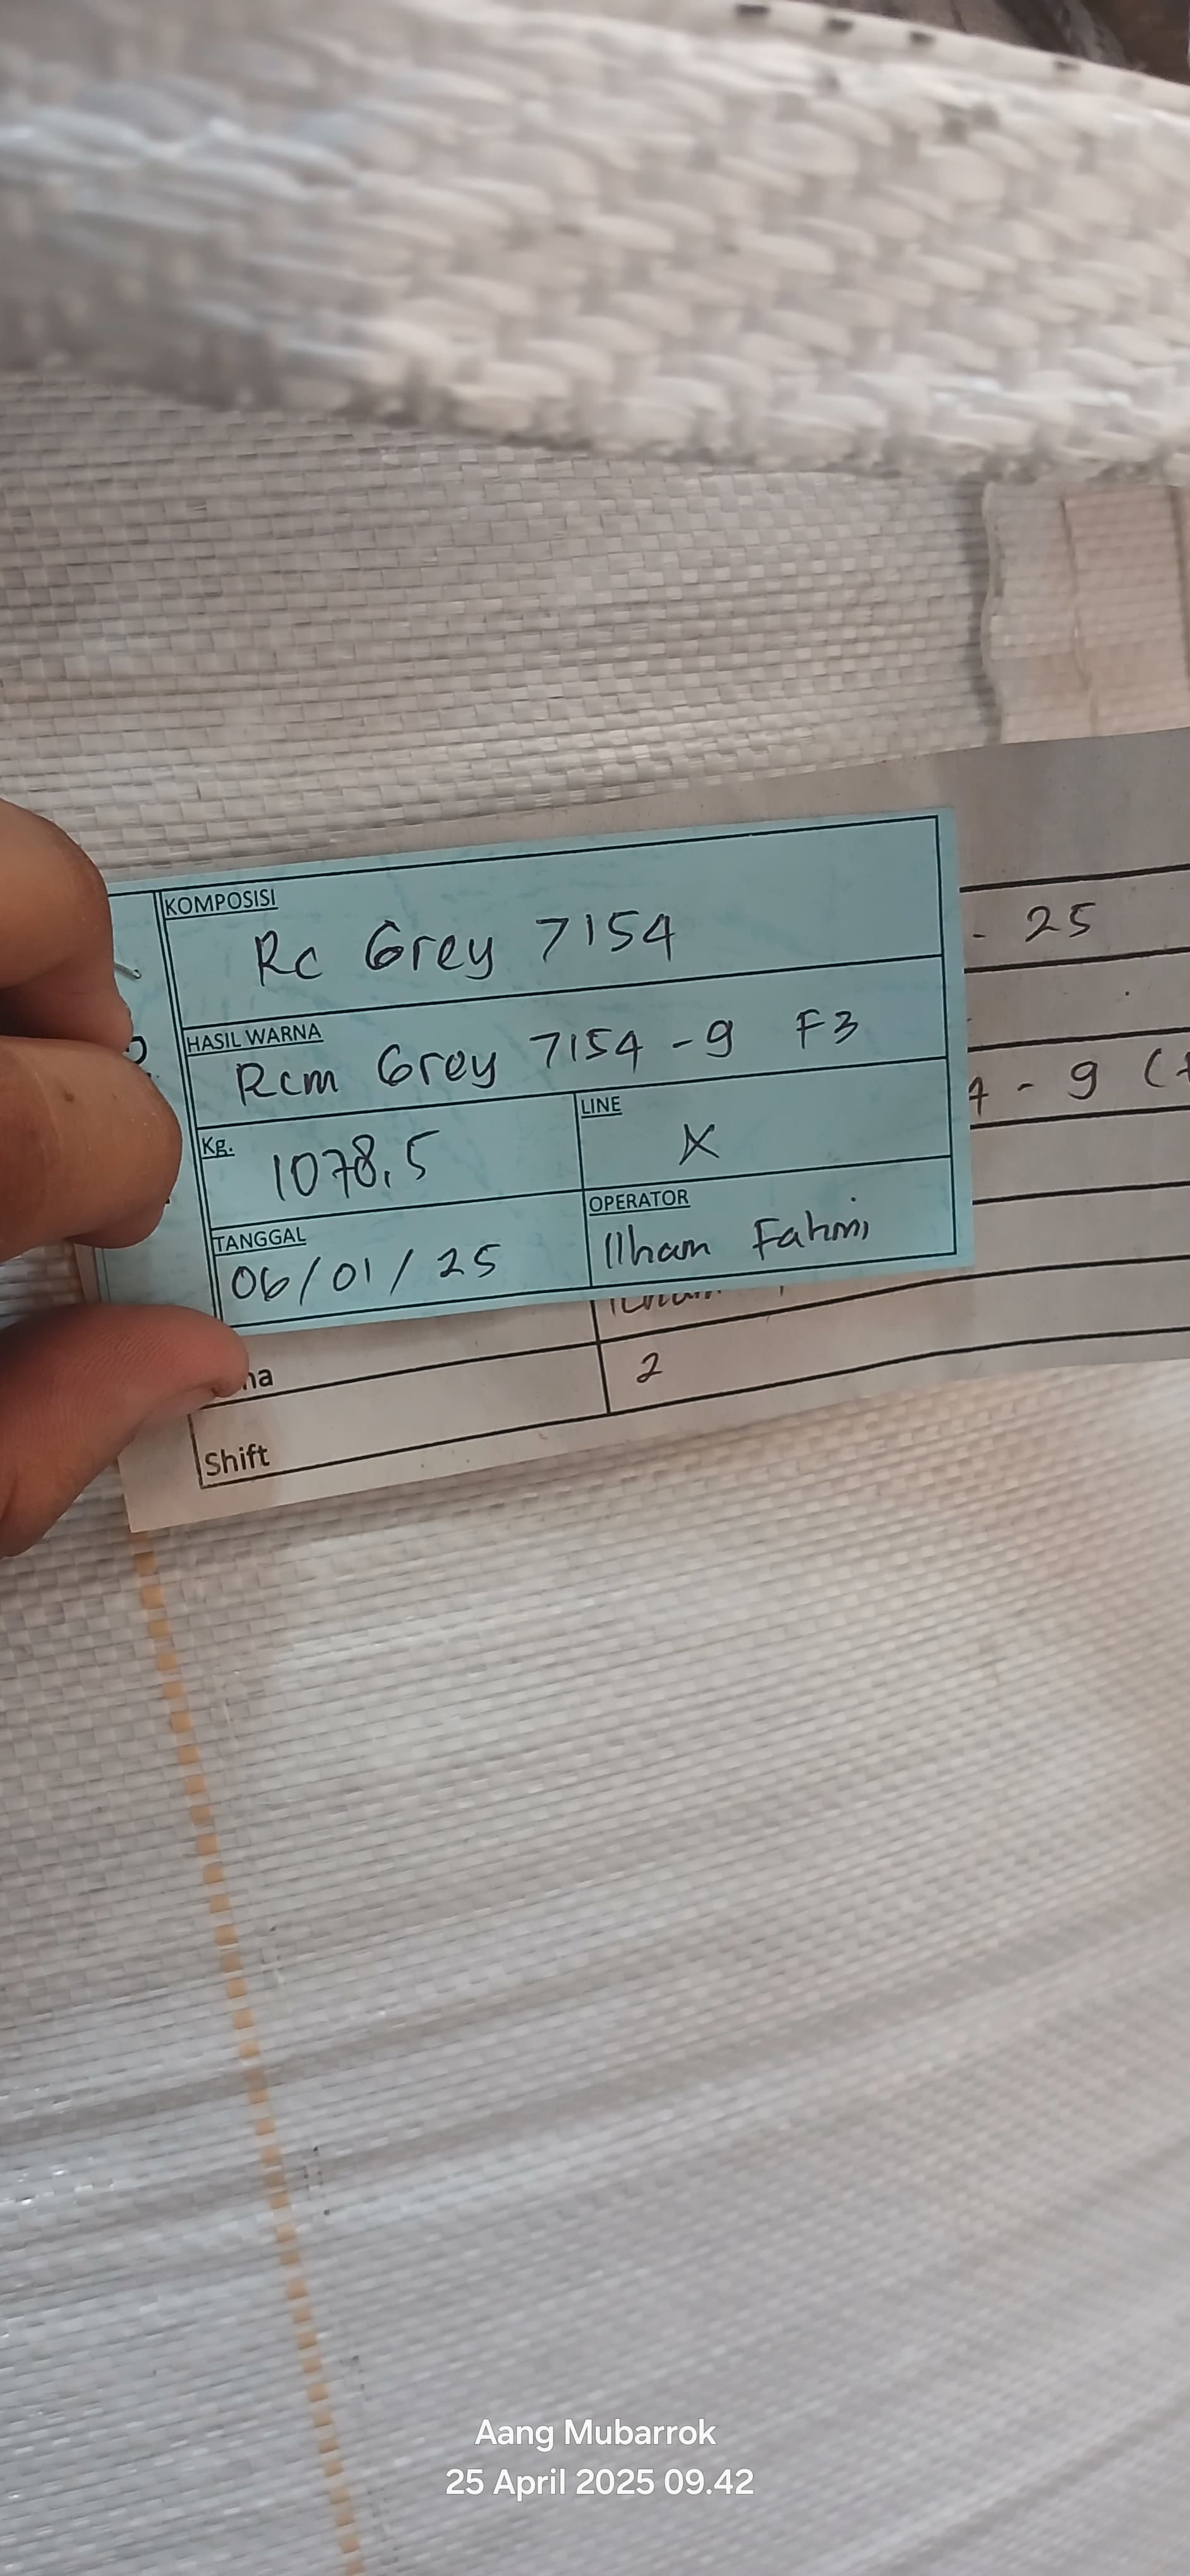 KOMPOSISI
Rc Grey 7154
HASIL WARNA
Rcm Grey 7154 - g F3
Kg.
1078,5
LINE
X
TANGGAL
06/01/25
OPERATOR
Ilham Fahmi
- 25
4 - g (
2
Shift
Aang Mubarrok
25 April 2025 09.42